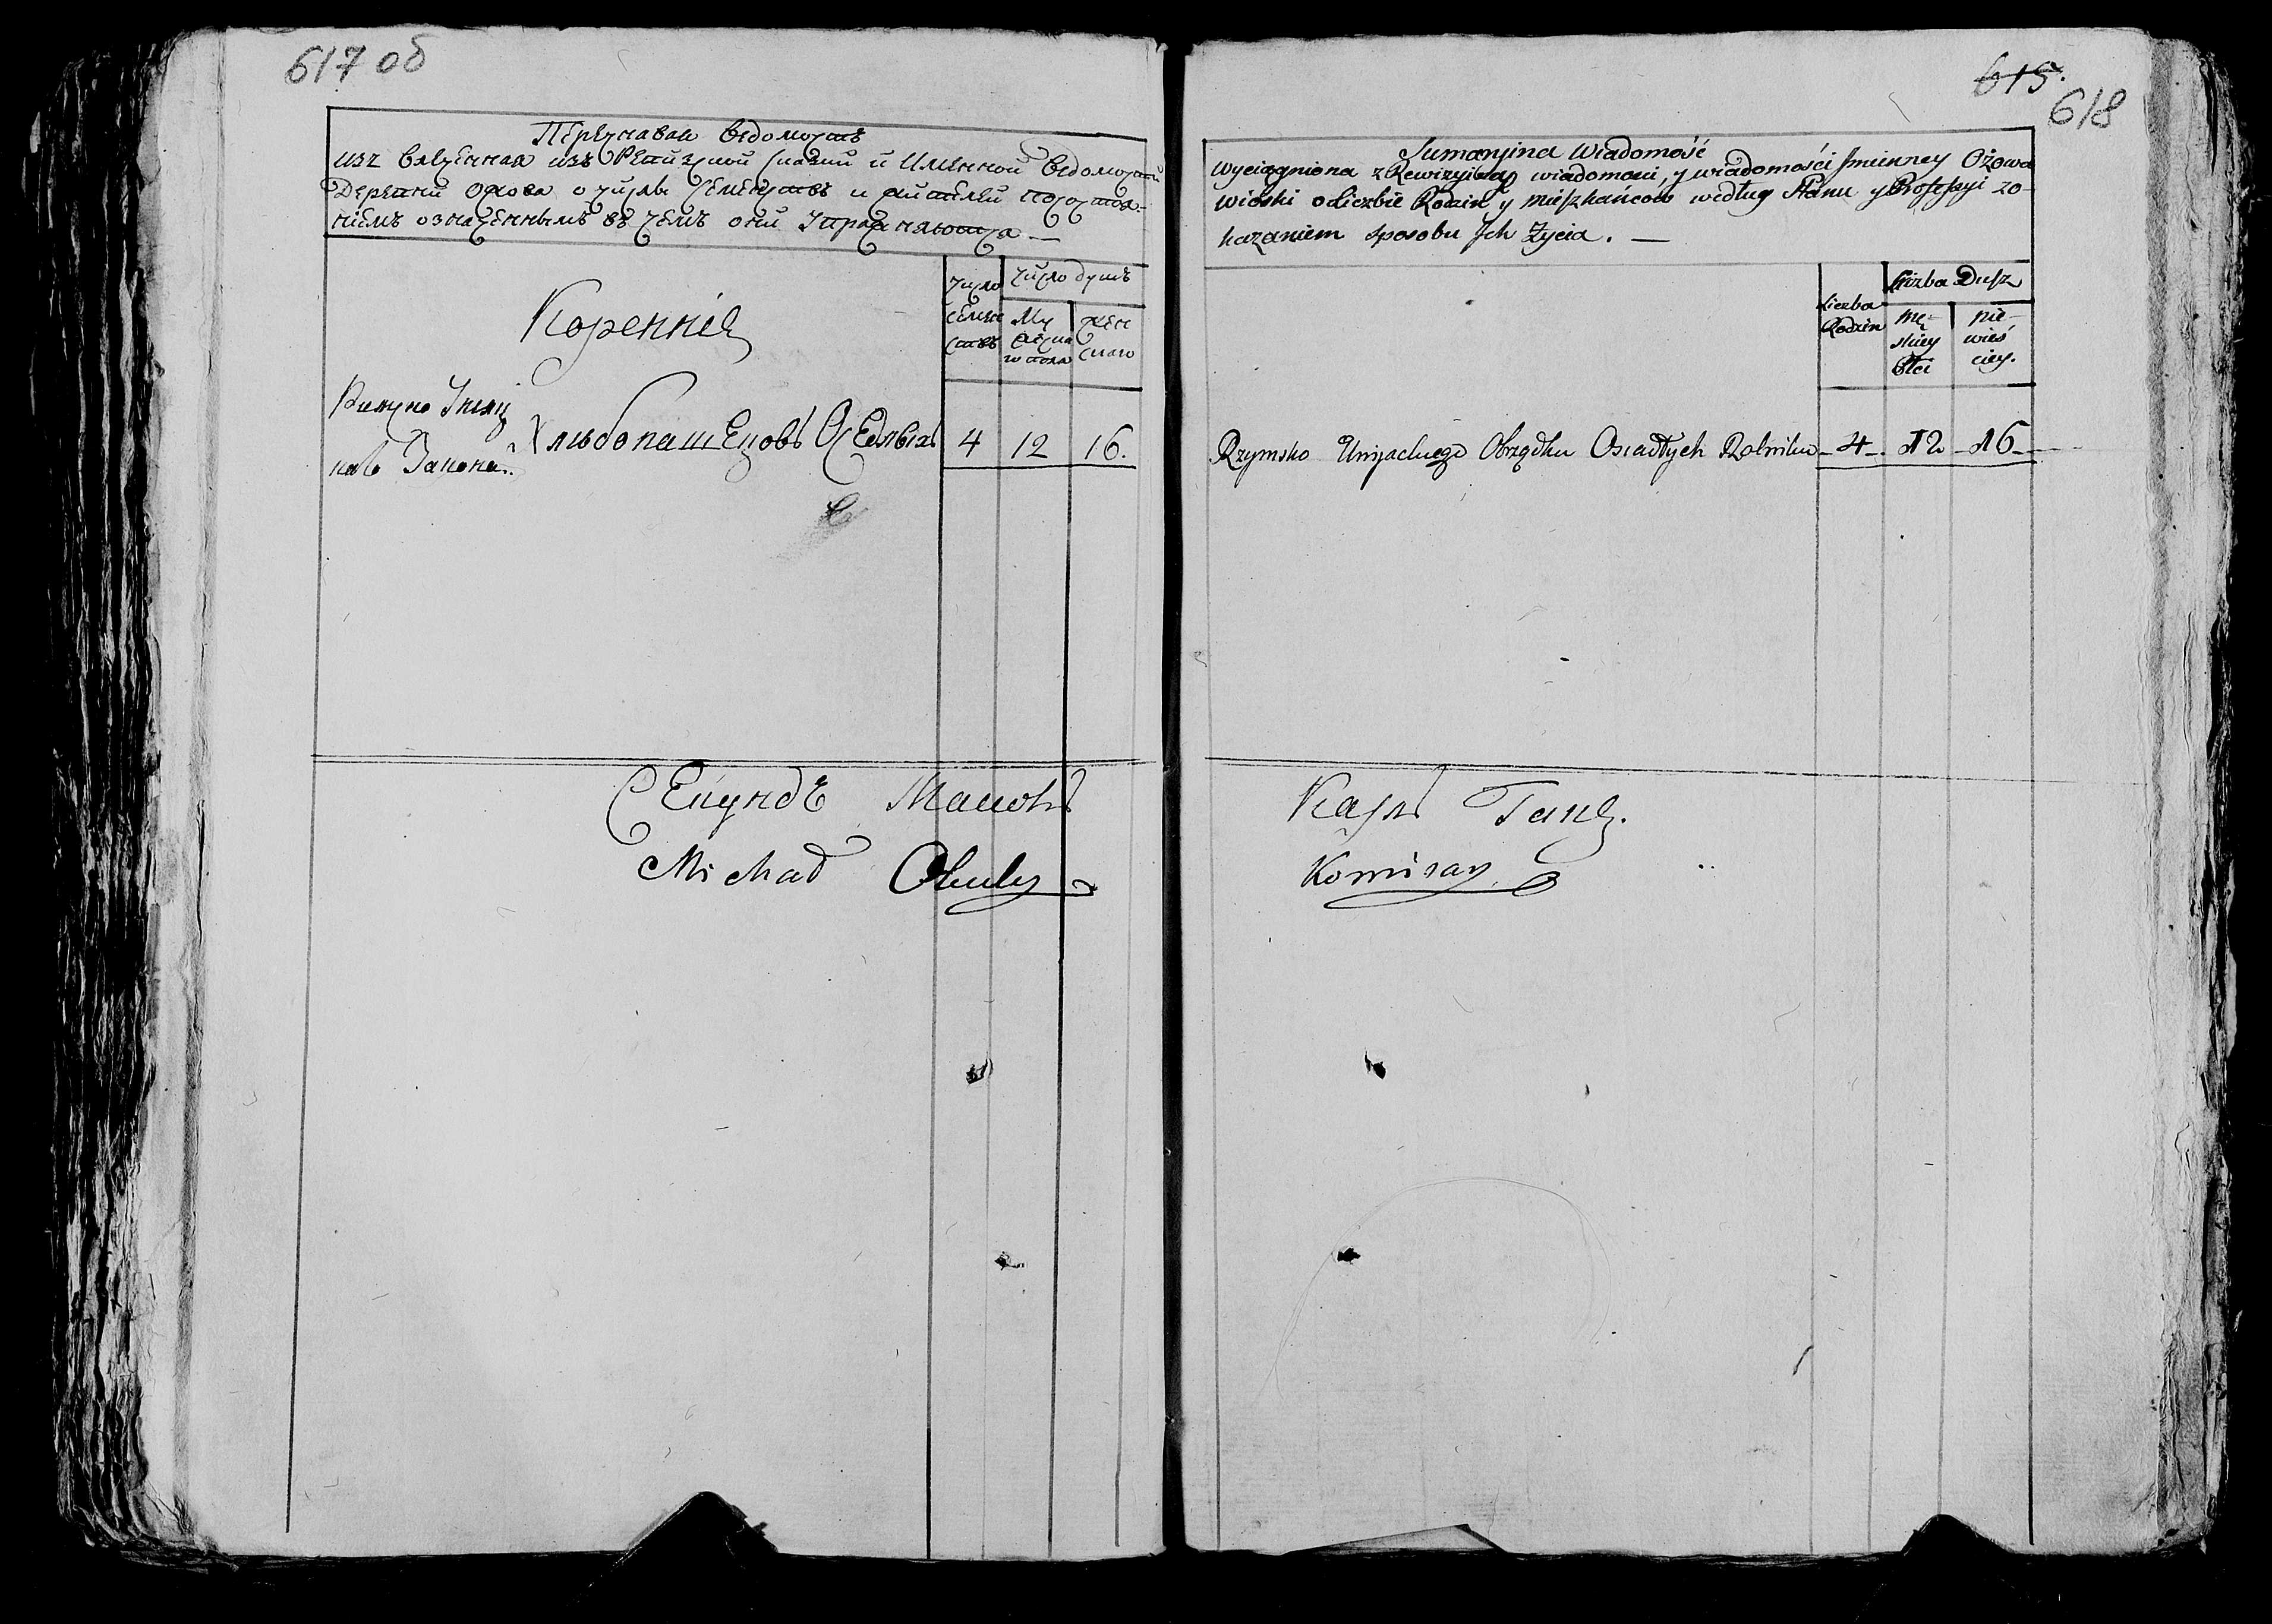 617 об
Перечнавая Ведомость
извлеченная изъ Ревизской сказки и Именной Ведомости
Деревни Ожова о числе семействъ и жителей по состоя-
ніемъ означеннымъ въ чемъ они упражняются —
Число семействъ
Число душъ
Мужеска го пола
женскаго
Кореннія
Римско Уніяцкаго Закона
Хлебопашецовъ Оседлыхъ 4 12 16.
Секундъ Маиоръ
Michał
615.
618
Sumaryina Wiadomość
wyciągniona z Rewizyina wiadomości, y wiadomości Jmienney Ożowa
wioski o liczbie Rodzin y mieszkańców według Stanu y Professyi zo-
kazaniem sposobu Jch Życia. —
Liczba Rodzin
Liczba Dusz
mę-
skiey
Płci
nie-
wieś
ciey.
Rzymsko Uniackiego Obrządku Osiadłych Rolników 4 12 16
Карлъ Ганъ.
Komisarz